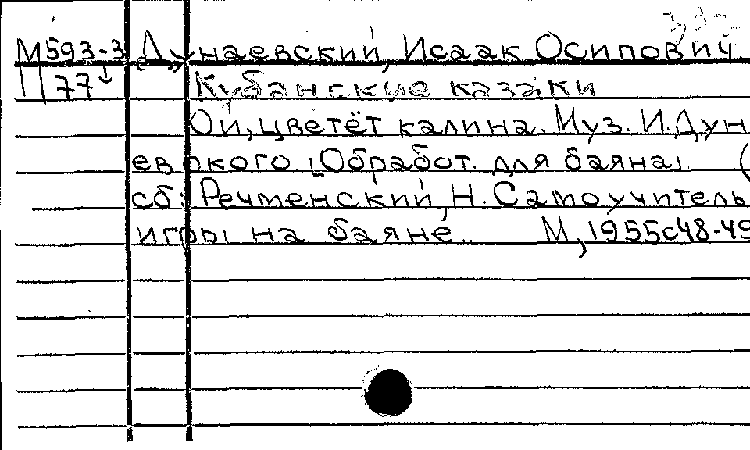 М593-3 Дунаевский, Исаак Осипович
П77 Кубанские казаки
Ой, цветёт калина. Муз. И. Дун
евского [Обработ. для баяна]. (
сб: Речменский, Н. Самоучитель
игры на баяне. М, 1955 с48-49